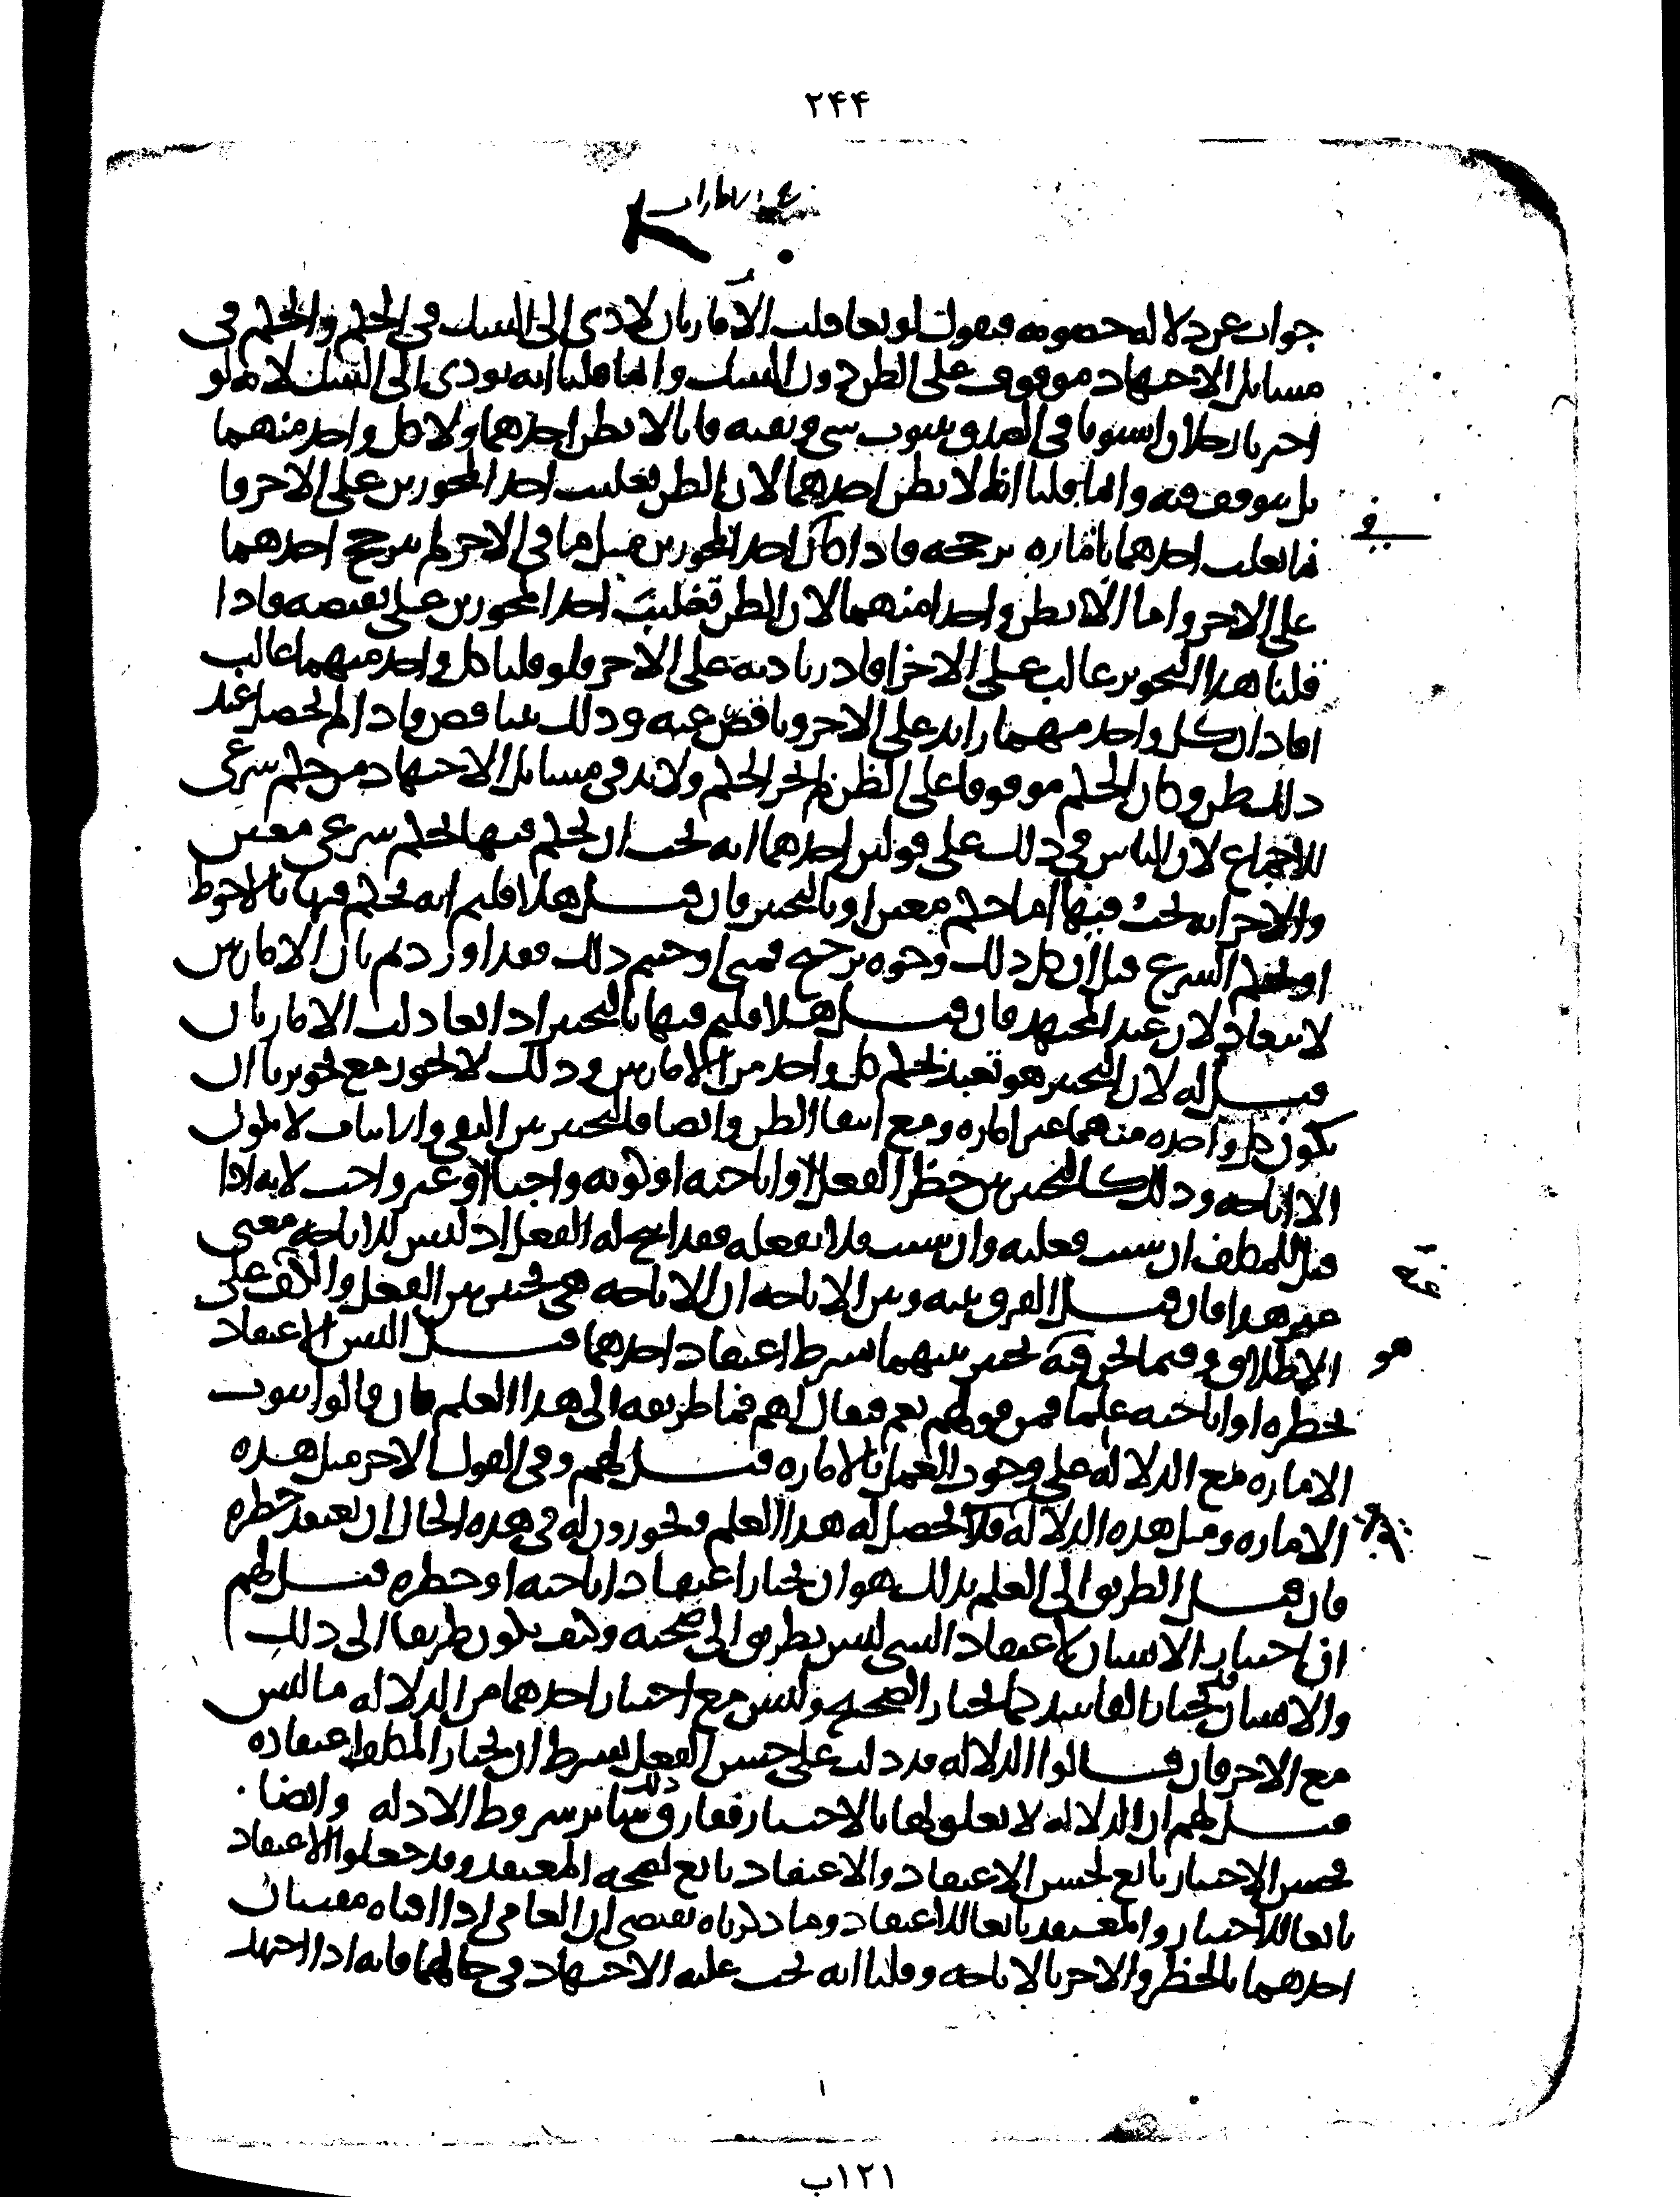 ٢۴۴
جواب عن دلاله خصومه فيقول لو تعادلت الامارتان لادى الى الشك في الحكم والحكم في
مسايل الاجتهاد موقوف على الظن دون الشك وانما قلنا انه يودى الى الشك لانه لو
اخبرنا رجلان استويا في الصدق بثبوت شي ونفيه فانا لا نظن احدهما ولا كل واحد منهما
بل نتوقف فيه وانما قلنا انا لا نظن احدهما لان الظن تغليب احد المجوزين على الاخر وا
نما نغلب احدهما بامارة ترجحه فاذا كان احد المجوزين مثل ما في الاخر لم يترجح احدهما
على الاخر واما الا نظن واحدا منهما لان الظن تغليب احد المجوزين على نقيضه فاذا
قلنا هذا التجويز غالب على الاخر افاد زيادته على الاخر فلو قلنا كل واحد منهما غالب
افاد ان كل واحد منهما زايد على الاخر وناقص عنه وذلك يتناقض فاذا لم يحصل عند
ذلك ظن وكان الحكم موقوفا على الظن لم يجز الحكم ولا بد في مسايل الاجتهاد من حكم شرعي
للاجماع لان الناس في ذلك على قولين احدهما انه يجب ان يحكم فيها بحكم شرعي معين
والاخر انه يجب فيها اما حكم معين او بالتخيير فان قيل هلا قلتم انه يحكم فيها بالاحوط
او بحكم الشرع قيل ان كل ذلك وجوه ترجيح فمتى اوجبتم ذلك فقد اقررتم بان الامارتين
لا يتعادلان عند المجتهد فان قيل هلا قلتم فيها بالتخيير اذا تعادلت الامارتان
قيل له لان التخيير هو تعبد بحكم كل واحد من الامارتين وذلك لا يجوز مع تجويزنا ان
تكون كل واحده منهما غير اماره ومع انتفا الظن وايضا فالتخيير بين النفي والاثبات لا يكون
الا اباحه وذلك كالتخيير بين حظر الفعل او اباحته او كونه واجبا او غير واجب لانه اذا
قيل للمكلف ان شيت فعلته وان شيت فلا تفعله فقد ابيح له الفعل اذ ليس للاباحه معنى
غير هذا فان قيل الفرق بينه وبين الاباحه ان الاباحه هي تخيير بين الفعل والكف على
الاطلاق وفيما نحن فيه تخيير بينهما بشرط اعتقاد احدهما قيل اليس الاعتقاد
هو
لحظره او اباحته علما فمن قولهم نعم فيقال لهم فما طريقه الى هذا العلم فان قالوا ثبوت
الاماره مع الدلاله على وجوب العمل بالاماره قيل لهم وفي القول الاخر مثل هذه
الاماره ومثل هذه الدلاله فلا يحصل له هذا العلم فتجوزون له في هذه الحال ان يعتقد حظره
فان قيل الطريق الى العلم بذلك هو ان يختار اعتقاد اباحته او حظره قيل لهم
ان اختيار الانسان لاعتقاد الشي ليس بطريق الى صحته وكيف يكون طريقا الى ذلك
والانسان قد يختار الفاسد كما يختار الصحيح وليس مع اختيار احدهما من الدلاله ما ليس
مع الاخر فان قالوا الدلاله قد دلت على حسن الفعل بشرط ان يختار المكلف اعتقاده
قيل لهم ان الدلاله لا تعلق لها بالاختيار ففارق ذلك ساير شروط الادله وايضا
فحسن الاختيار تابع لحسن الاعتقاد والاعتقاد تابع لصحه المعتقد وقد جعلوا الاعتقاد
تابعا للاختيار والمعتقد تابعا للاعتقاد وما ذكرناه يقتضي ان العامي اذا افتاه مفتيان
احدهما بالحظر والاخر بالاباحه وقلنا انه يجب عليه الاجتهاد في حالهما فانه اذا اجتهد
١٢١ب